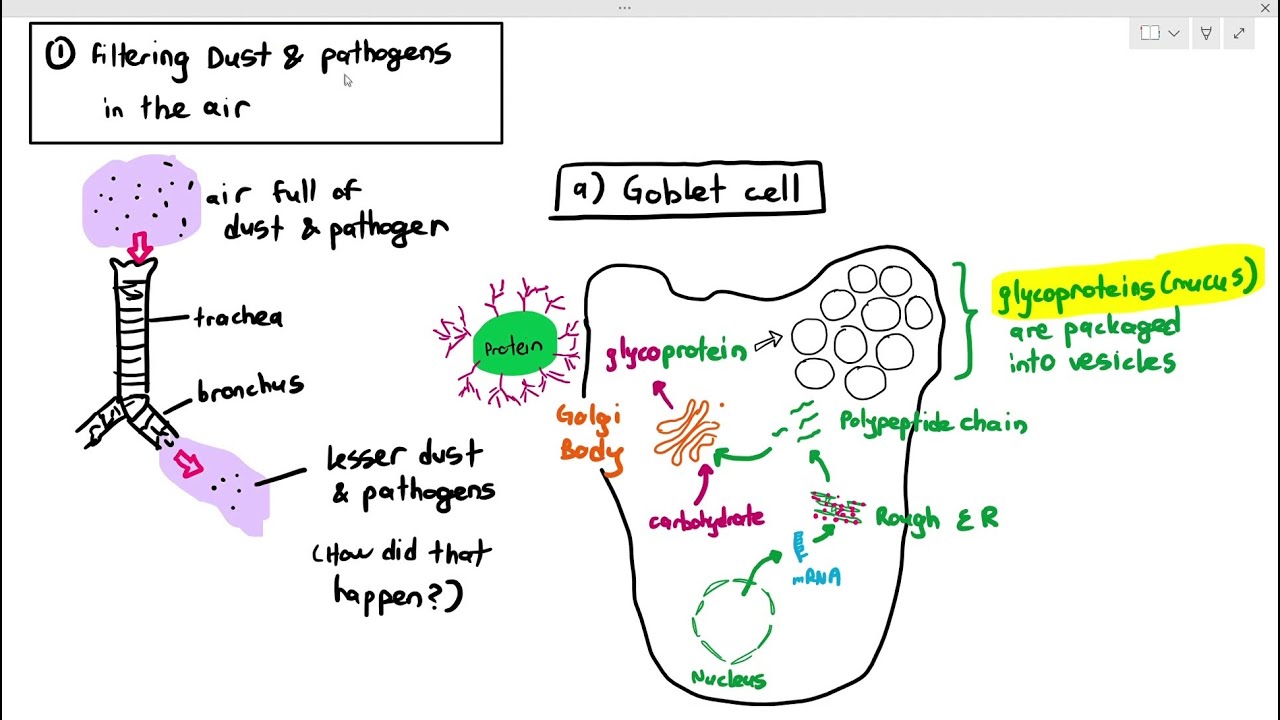 ① Filtering Dust & pathogens
in the air
air full of
dust & pathogen
trachea
bronchus
lesser dust
& pathogens
(How did that
happen?)
a) Goblet cell
Protein
glycoprotein
glycoproteins (mucus)
are packaged
into vesicles
Golgi
Body
Polypeptide chain
carbohydrate
Rough ER
mRNA
Nucleus